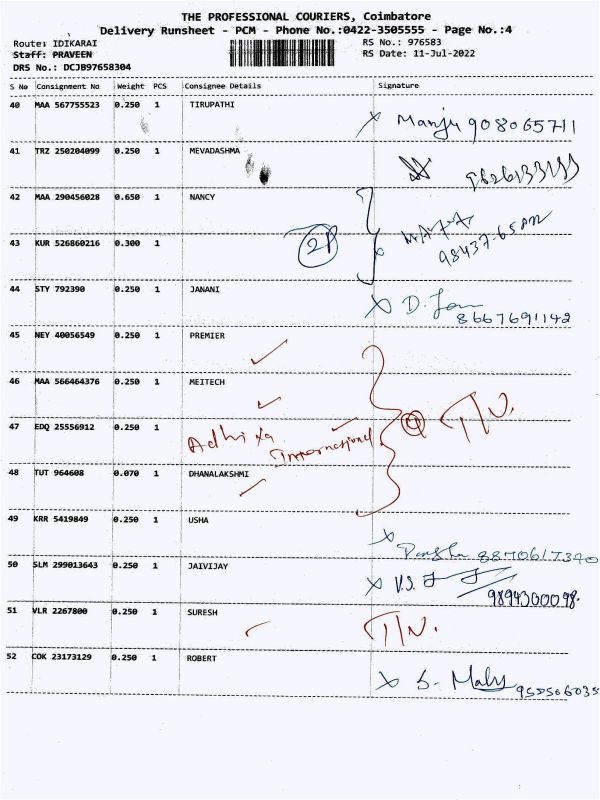 THE PROFESSIONAL COURIERS, Coimbatore
Delivery Runsheet - PCM - Phone No.:0422-3505555 - Page No.:4
Route: IDIKARAI RS No.: 976583
Staff: PRAVEEN RS Date: 11-Jul-2022
DRS No.: DCJB97658304
S No Consignment No Weight PCS Consignee Details Signature
40 MAA 567755523 0.250 1 TIRUPATHI
Manju 908065711
41 TRZ 250204099 0.250 1 MEVADASHMA
42 MAA 290456028 0.650 1 NANCY
43 KUR 526860216 0.300 1
2P
44 STY 792390 0.250 1 JANANI
8667691142
45 NEY 40056549 0.250 1 PREMIER
46 MAA 566464376 0.250 1 MEITECH
47 EDQ 25556912 0.250 1
T/N.
48 TUT 964608 0.070 1 DHANALAKSHMI
49 KRR 5419849 0.250 1 USHA
8870617340
50 SLM 299013643 0.250 1 JAIVIJAY
51 VLR 2267800 0.250 1 SURESH
T/N.
52 COK 23173129 0.250 1 ROBERT